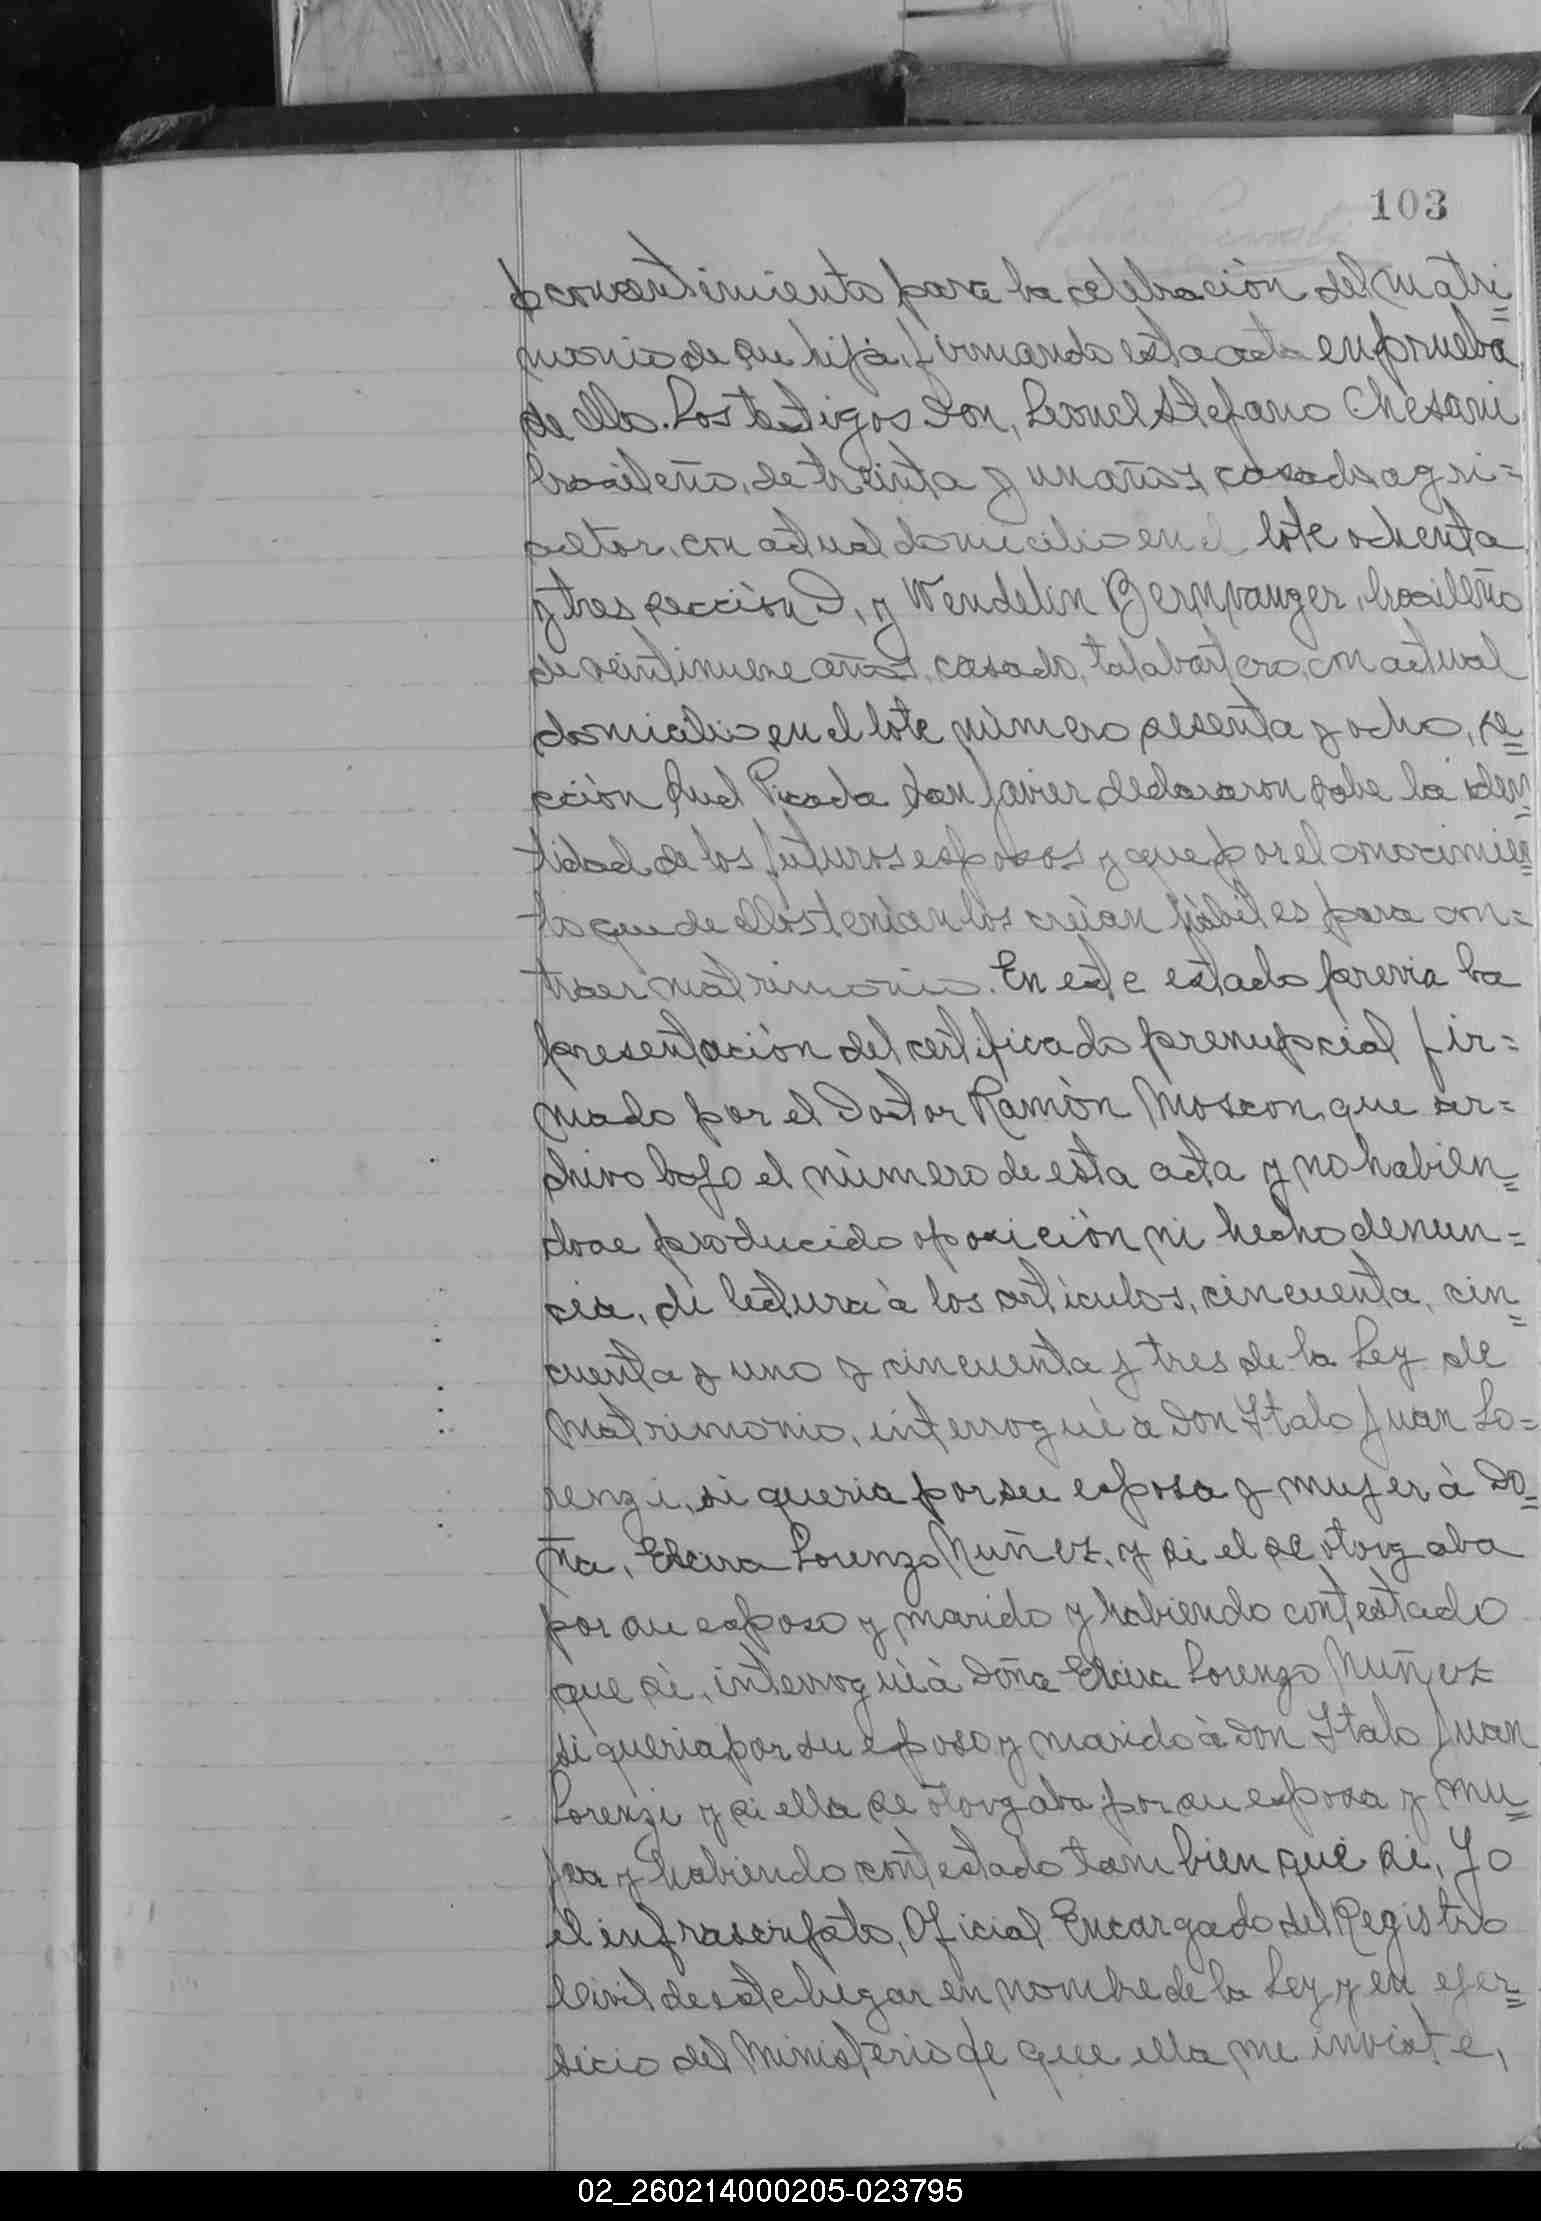 103
consentimiento para la celebración del matri=
monio de su hija, firmando esta acta en prueba
de ello. Los testigos Don, Leonel Stefano Chesani
brasileño, de treinta y un años, casado agri=
cultor, con actual domicilio en el lote ochenta
y tres sección D, y Wendelin Bernvanger, brasileño
de veintinueve años, casado, talabartero, con actual
domicilio en el lote número sesenta y ocho, se=
cción Sud Picada San Javier declararon sobre la iden=
tidad de los futuros esposos y que por el conocimien=
to que de ellos tenían los creían hábiles para con=
traer matrimonio. En este estado previa la
presentación del certificado prenupcial fir=
mado por el Doctor Ramón Moscon, que ar=
chivo bajo el número de esta acta y no habien=
dose producido oposición ni hecho denun=
cia, dí lectura à los artículos, cincuenta, cin=
cuenta y uno y cincuenta y tres de la Ley de
Matrimonio, interrogué à Don Italo Juan Lo=
renzi, si queria por su esposa y mujer à Do=
ña, Elcira Lorenzo Nuñez, y si el se otorgaba
por su esposo y marido y habiendo contestado
que si, interrogué à Doña Elcira Lorenzo Nuñez
si queria por su esposo y marido à Don Italo Juan
Lorenzi y si ella se otorgaba por su esposa y mu=
jer y habiendo contestado tambien que si, Yo
el infrascripto, Oficial Encargado del Registro
Civil de este lugar en nombre de la Ley y en ejer=
sicio del Ministerio de que ella me inviste,
02_260214000205-023795